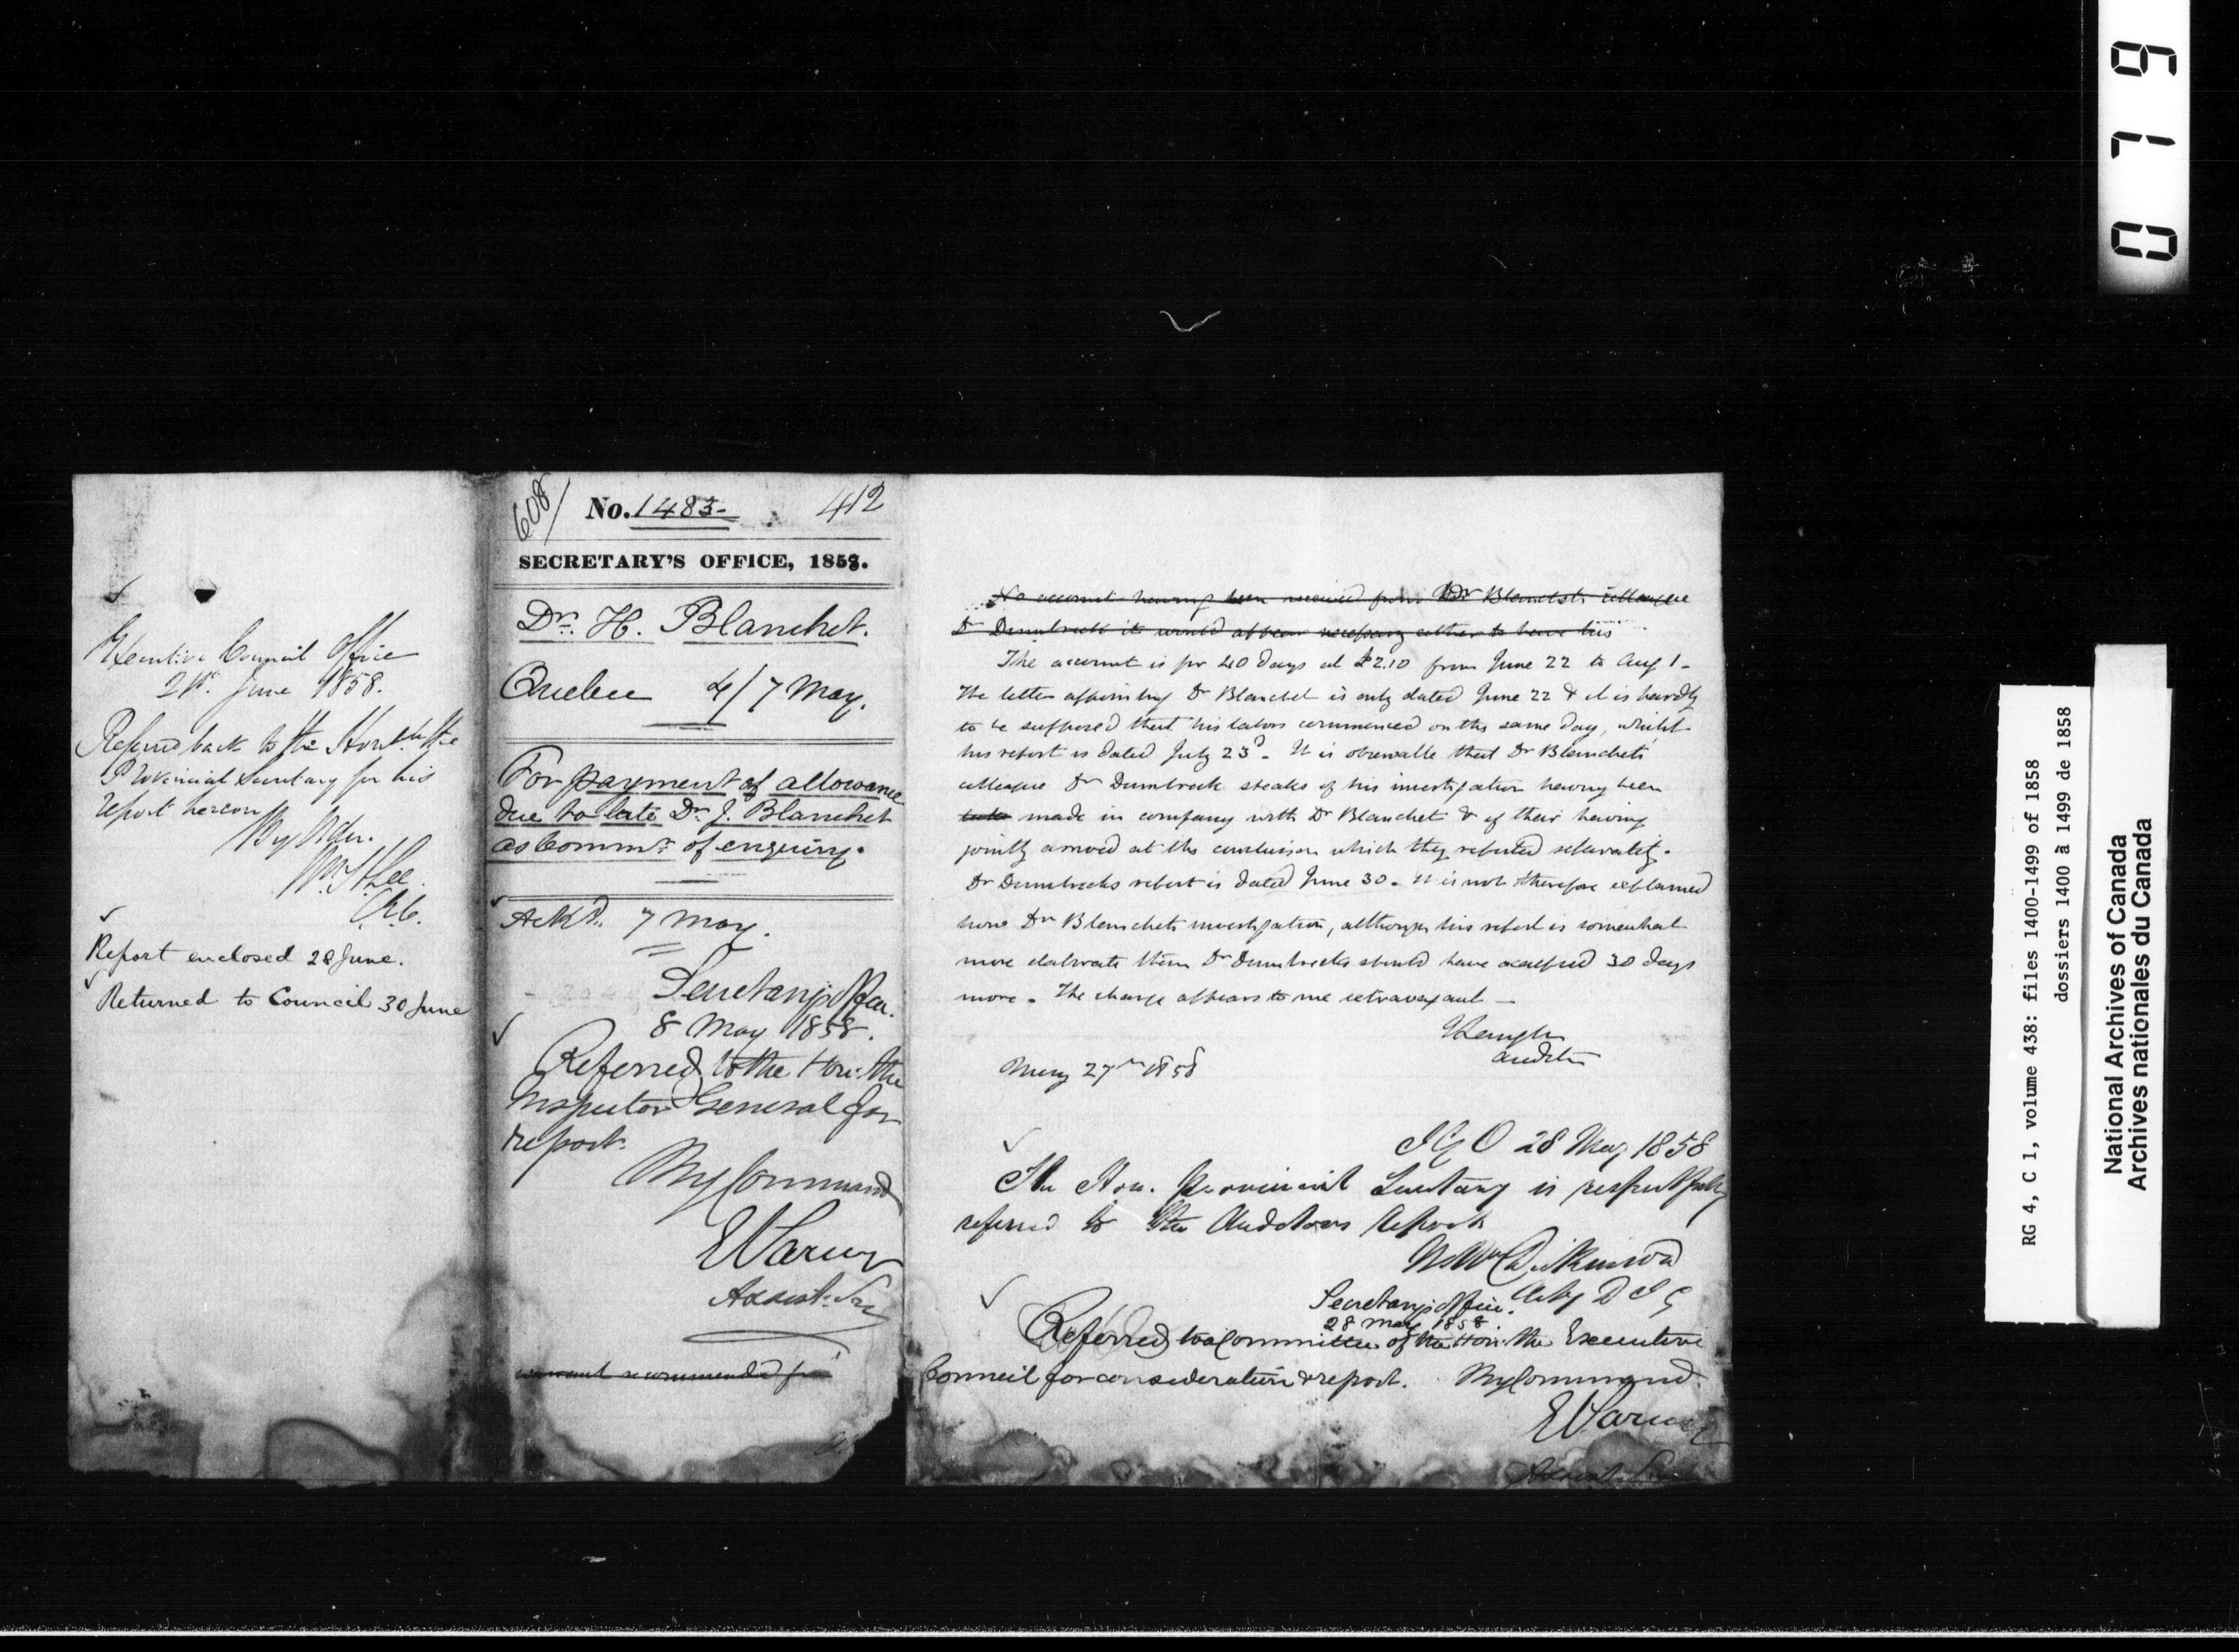 Executive Council Office
21st. June 1858.
Referred back to the Honble the
Provincial Secretary for his
report hereon
By Order.
Wm. H. Lee.
C.E.C.
Report enclosed 28 June.
Returned to Council 30 June
608/
No. 1483- 412
SECRETARY'S OFFICE, 1858.
Dr. H. Blanchet.
Quebec 4/7 May.
For payment of allowance
due to late Dr. J. Blanchet
as Commr. of enquiry.
Ackd. 7 May.
Secretary's Office.
8 May 1858.
Referred to the Hon: the
Inspector General for
report.
By Command
E Parent
Assist: Sec
warrant recommended for
No account having been received from Dr Blanchets colleague
Dr Dumbreck it would appear necessary either to have his
The account is for 40 days at £2.10 from June 22 to Aug 1-
The letter appointing Dr Blanchet is only dated June 22 & it is hardly
to be supposed that his labors commenced on the same day, whilst
his report is dated July 23d - It is observable that Dr Blanchets
colleague Dr Dumbreck speaks of his investigation having been
made in company with Dr Blanchet & of their having
jointly arrived at the conclusion which they reported separately.
Dr Dumbrecks report is dated June 30 - It is not therefore explained
how Dr Blanchets investigation, although his report is somewhat
more elaborate than Dr Dumbrecks should have occupied 30 days
more - The charge appears to me extravagant -
Langton
Auditor
May 27th 1858
I G O 28 May 1858
The Hon. Provincial Secretary is respectfully
referred to the Auditors Report
Wm Dickinson
Actg D I G
Secretary's Office.
28 May 1858.
Referred to a Committee of the Hon: the Executive
Council for consideration & report. By Command.
E Parent
Assist. Sec
0719
RG 4, C 1, volume 438: files 1400-1499 of 1858
dossiers 1400 à 1499 de 1858
National Archives of Canada
Archives nationales du Canada